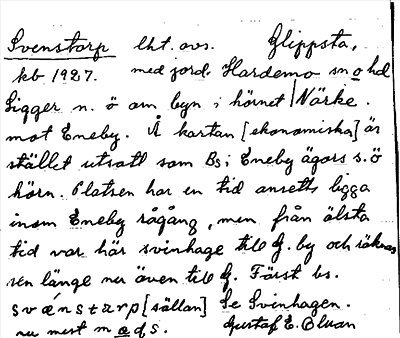 Svenstorp lht. avs. Glippsta,
kb 1927. med jord. Hardemo sn o hd
Ligger n. ö om byn i hörnet Närke.
mot Eneby. Å kartan [ekonomiska] är
stället utsatt som Bs i Eneby ägors s. ö
hörn. Platsen har en tid ansetts ligga
inom Eneby rågång, men från älsta
tid var här svinhage till G. by och räknas
sen länge nu även till G. Först bs.
svænstarp [sällan] Se Svinhagen.
nu mest Gustaf E. Bluan